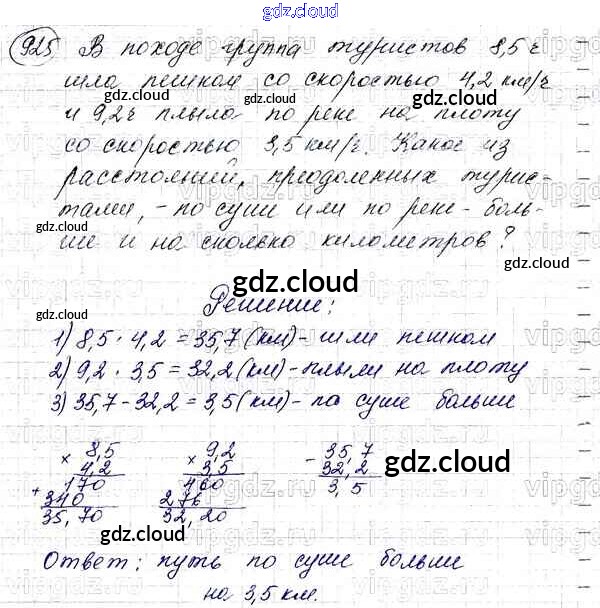 gdz.cloud
925 В походе группа туристов 8,5 ч
шла пешком со скоростью 4,2 км/ч
gdz.cloud gdz.cloud
и 9,2 ч плыла по реке на плоту
со скоростью 3,5 км/ч. Какое из
расстояний, преодоленных турис-
gdz.cloud
тами, - по суши или по реке - боль-
ше и на сколько километров?
gdz.cloud
gdz.cloud Решение: gdz.cloud
1) 8,5 · 4,2 = 35,7 (км) - шли пешком
2) 9,2 · 3,5 = 32,2 (км) - плыли на плоту
3) 35,7 - 32,2 = 3,5 (км) - по суше больше
× 8,5 × 9,2 - 35,7
4,2 3,5 32,2 gdz.cloud
170 460 3,5
+ 340 276
35,70 32,20
gdz.cloud gdz.cloud
Ответ: путь по суше больше
на 3,5 км.
gdz.cloud
vipgdz.ru